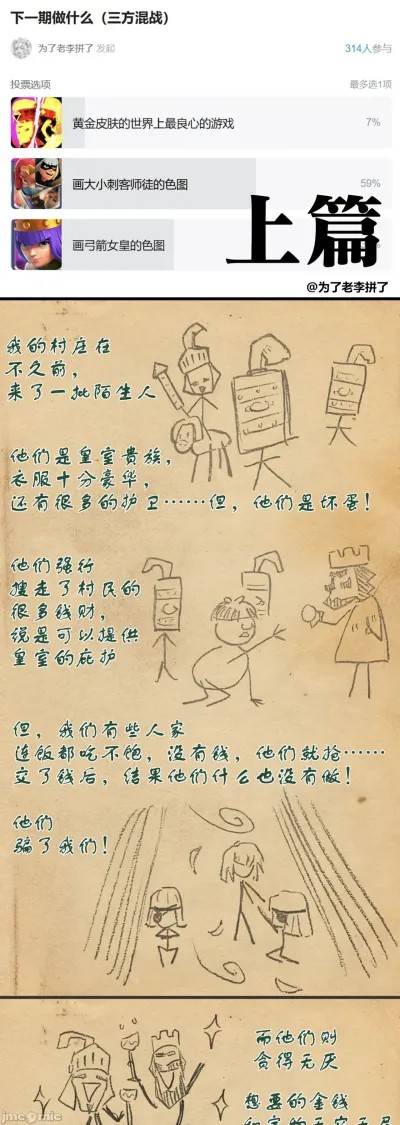 下一期做什么（三方混战）
为了老李拼了 发起
314人参与
投票选项
最多选1项
黄金皮肤的世界上最良心的游戏
7%
画大小刺客师徒的色图
59%
画弓箭女皇的色图
上篇
@为了老李拼了
我的村庄在
不久前，
来了一批陌生人
他们是皇室贵族，
衣服十分豪华，
还有很多的护卫……但，他们是坏蛋！
他们强行
搜走了村民的
很多钱财，
说是可以提供
皇室的庇护
但，我们有些人家
连饭都吃不饱，没有钱，他们就抢……
交了钱后，结果他们什么也没有做！
他们
骗了我们！
而他们则
贪得无厌
想要的金钱
jmcomic